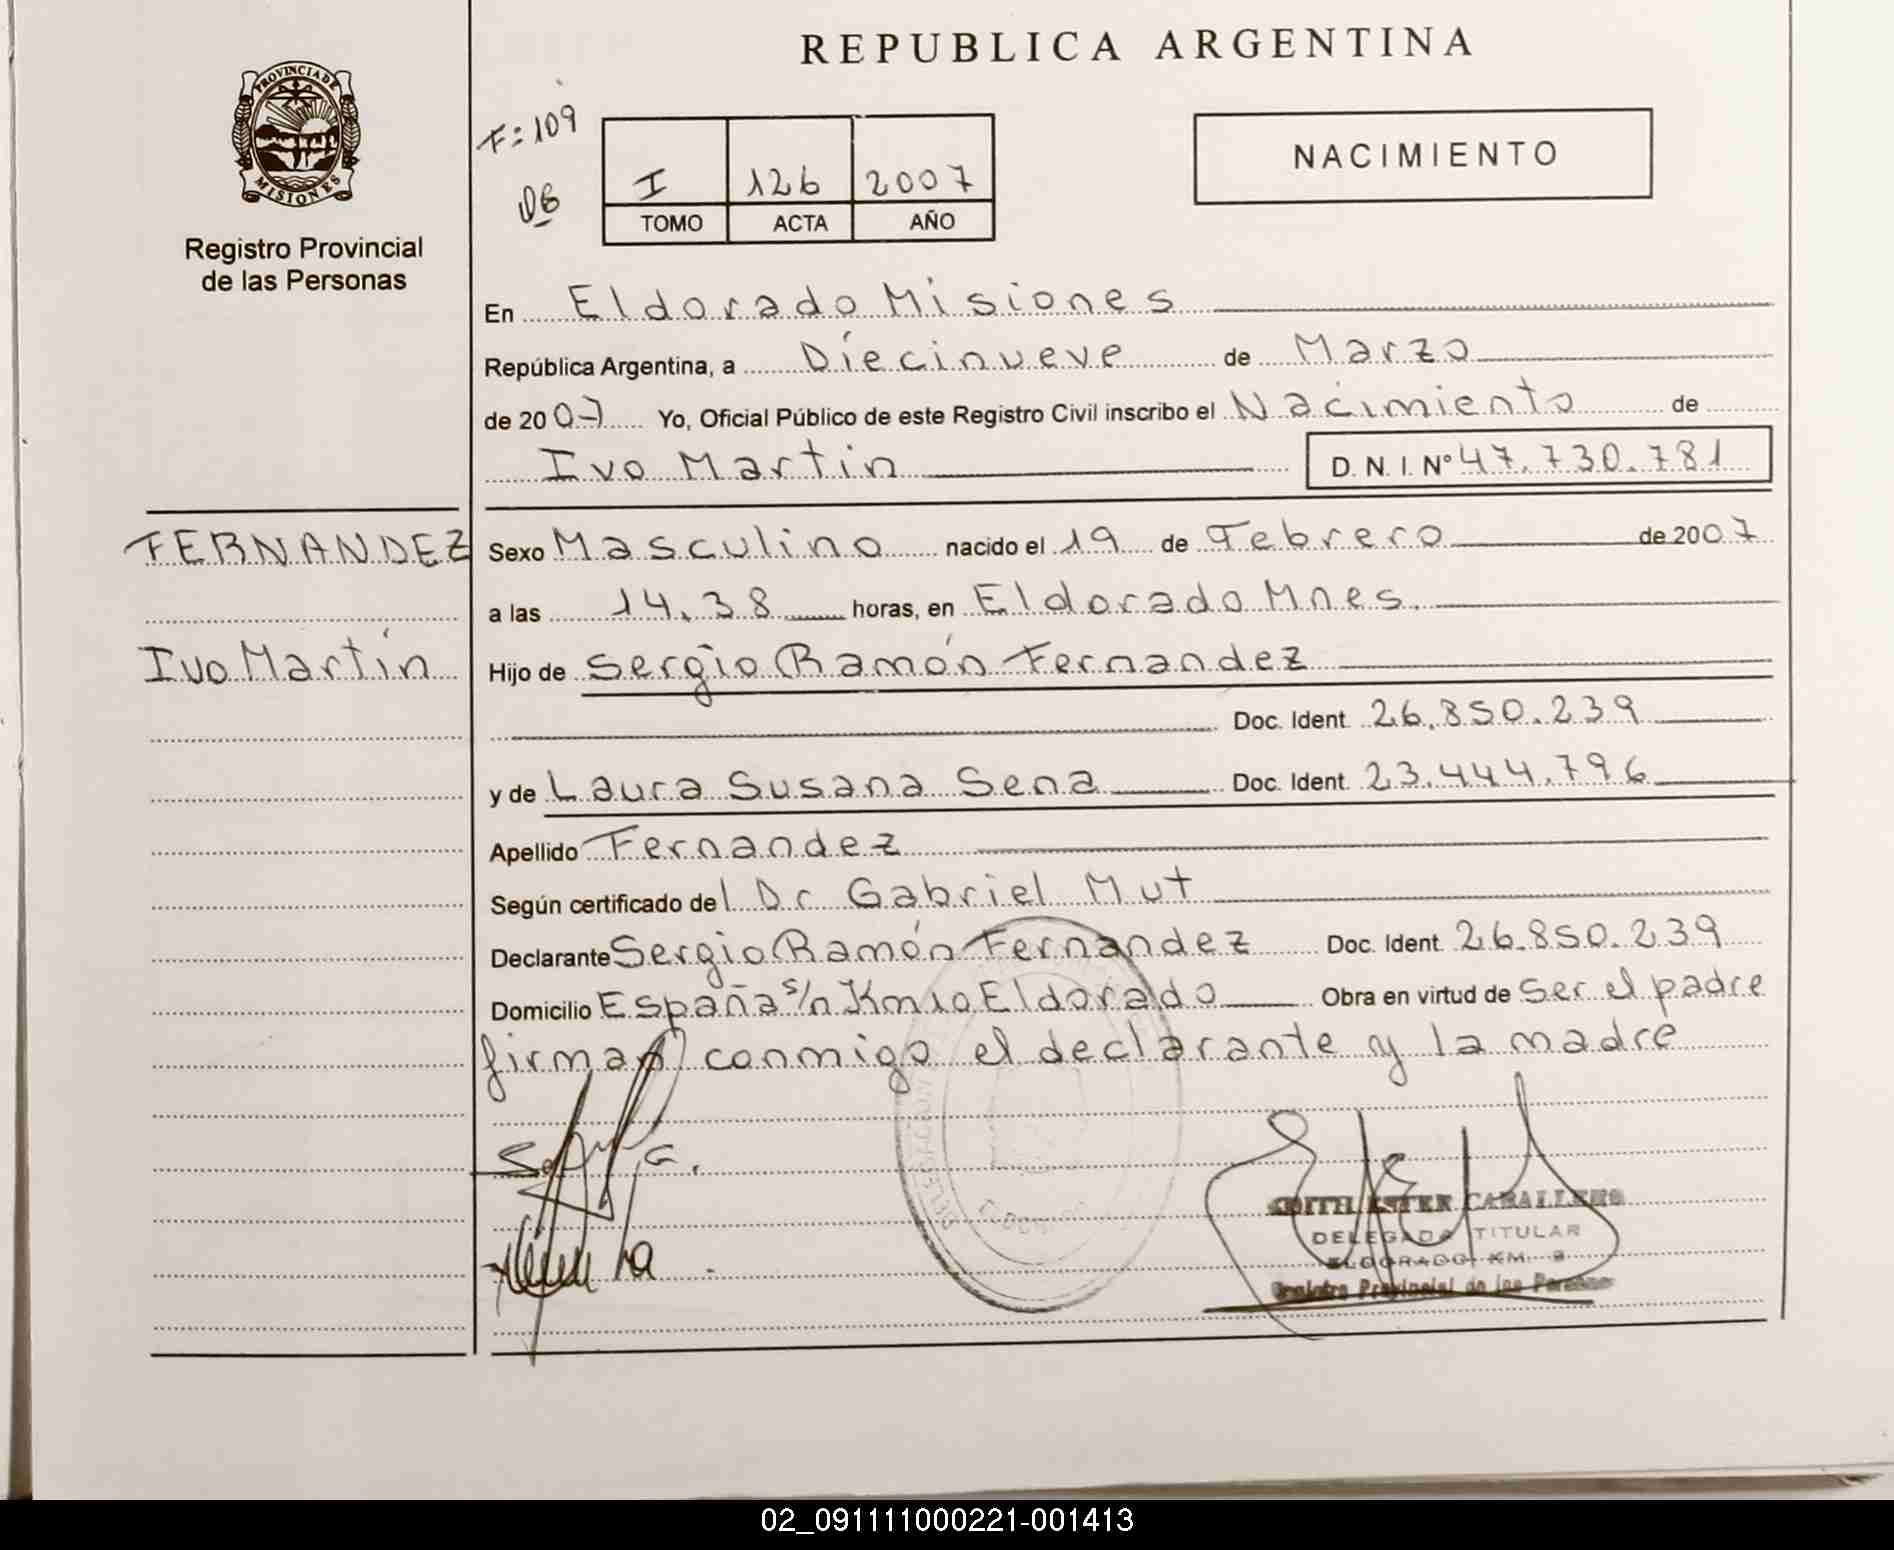 REPUBLICA ARGENTINA
PROVINCIA DE
MISIONES
Registro Provincial
de las Personas
F: 109
I 126 2007
TOMO ACTA AÑO
NACIMIENTO
En Eldorado Misiones
República Argentina, a Diecinueve de Marzo
de 2007 Yo, Oficial Público de este Registro Civil inscribo el Nacimiento de
Ivo Martín D. N. I. Nº 47.730.781
FERNANDEZ
Ivo Martín
Sexo Masculino nacido el 19 de Febrero de 2007
a las 14.38 horas, en Eldorado Mnes.
Hijo de Sergio Ramón Fernandez
Doc. Ident. 26.850.239
y de Laura Susana Sena Doc. Ident. 23.444.796
Apellido Fernandez
Según certificado del Dr Gabriel Mut
Declarante Sergio Ramón Fernandez Doc. Ident. 26.850.239
Domicilio España s/n Km 10 Eldorado Obra en virtud de Ser el padre
firman conmigo el declarante y la madre
EDITH ESTER CABALLERO
DELEGADA TITULAR
ELDORADO KM. 9
Registro Provincial de las Personas
02_091111000221-001413